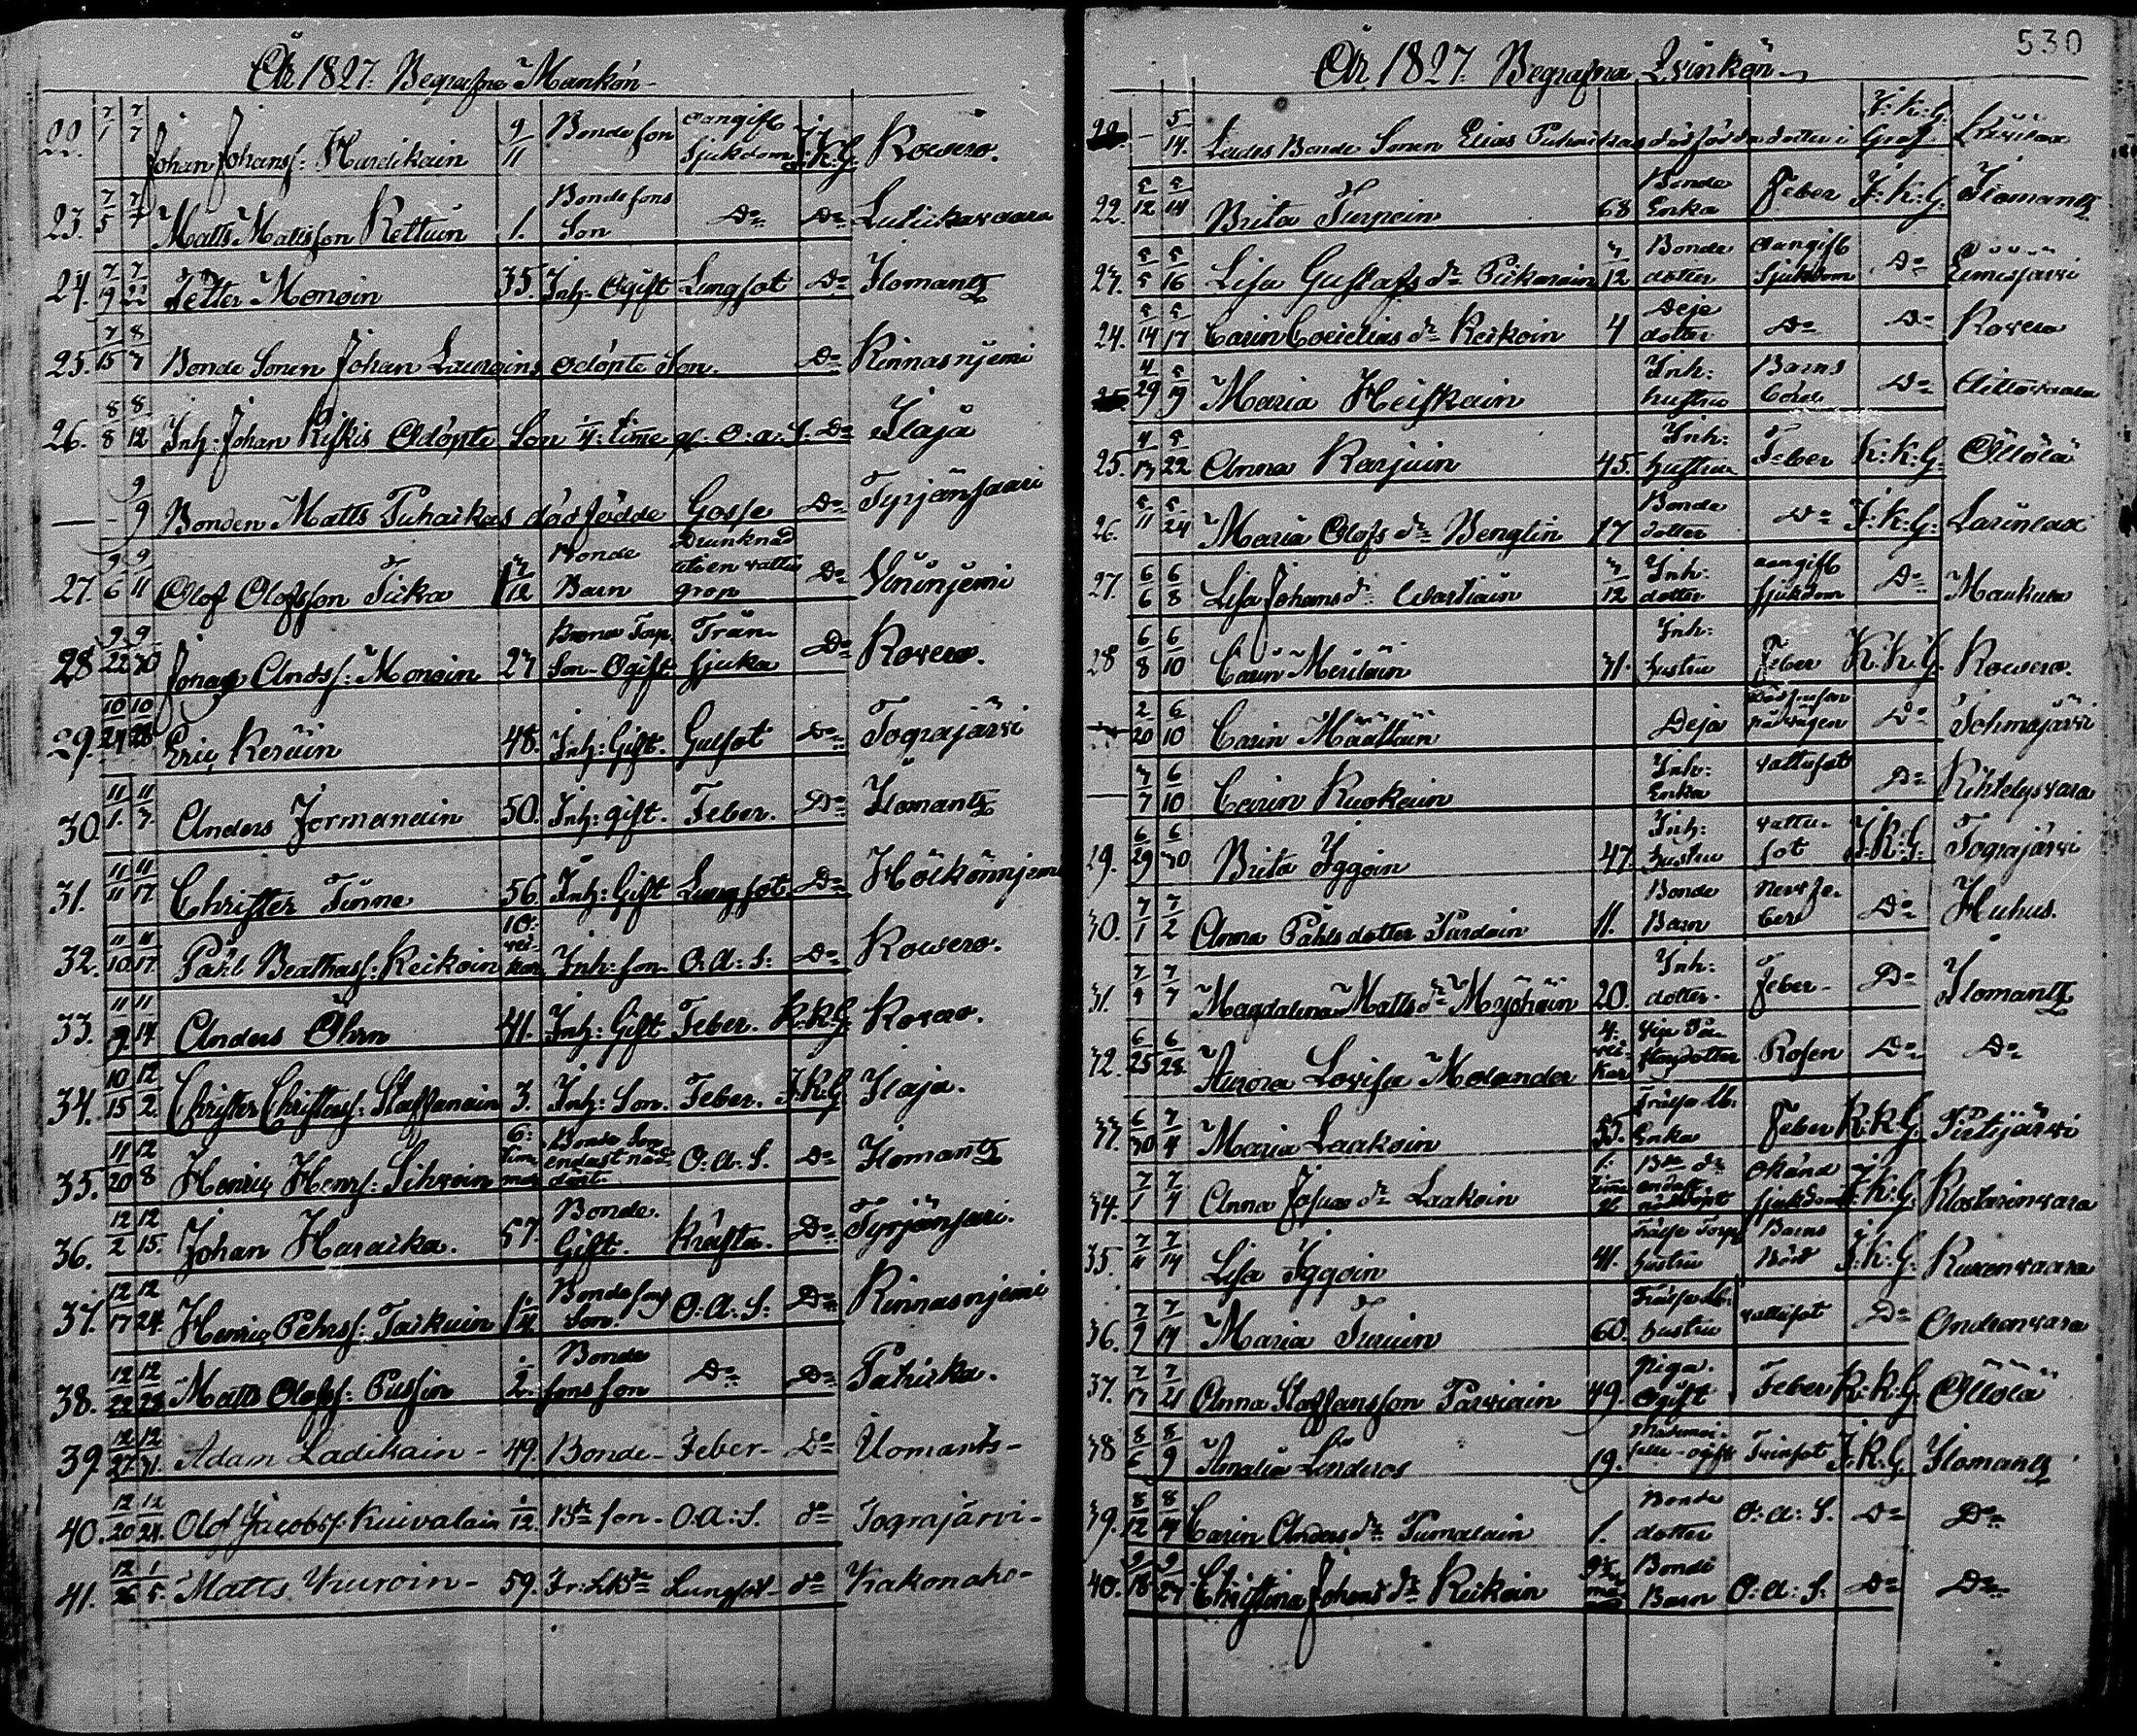 År 1827. Begrafne Mankön
22. 7/1 7/7 Johan Johanss: Hurdikain 9/11 Bonde son oangifb sjukdom J.K.G. Kowero.
23. 7/5 7/7 Matts Mattsson Kettuin 1. Bonde sons Son Do Do
24. 7/19 7/22 Petter Monoin 35. Inh. Ogift Lungsot Do Ilomantz
25. 7/15 8/7 Bonde Sonen Johan odöpte Son. Do Kinnasnjemi
26. 8/8 8/12 Inh: Johan Odöpte Son 1/4: time gl. O:a:S. Do Ilaja
— - 9/9 Bonden Matts Puhaikas dödfödde Gosse Do Tyrjänsaari
27. 9/6 9/11 Olof Olofsson Sicka Bonde Barn Drunknad uti en vattu grop Do
28 9/22 9/30 Johan Andss: Monoin 27 Son Ogift Trån sjuka Do Kowero.
29. 10/24 10/28 Eric Keräin 48. Inh: Gift. Gulsot Do Tograjärvi
30. 11/1. 11/3. Anders Jormanain 50. Inh: gift. Feber. Do Ilomantz
31. 11/11 11/17 Christer Tinne 56. Inh: Gift Lungsot Do
32. 11/10 11/17. Påhl Beathass: Keikoin 10. vei- kor Inh: son O:A:S: Do Kowero.
33. 11/9 11/14. Anders Öhrn 41. Inh: Gift Feber. K.K.G. Kowero.
34. 10/15 12/2. Christer Christerss: Staffanain 3. Inh: Son. Feber. J.K.G. Ilaja.
35. 11/20 12/8 Henric Henrs: Sihvoin 6: Tim mar Bonde Son endast nöd döpt. O:A:S. Do Ilomantz
36. 12/2 12/15. Johan Haraika. 57. Bonde. Gift. Kräfta. Do Tyrjänsari.
37. 12/17 12/24. Henric Pehrs: Taikuin 1/4 Bonde sons Son. O:A:S: Do Kinnasnjemi
38. 12/22 12/28 Matts Olofss: Pussin 2. Bonde sons son Do Do Patrikka.
39. 12/27 12/31. Adam Ladikain - 49. Bonde - Feber - Do Ilomants -
40. 12/20 12/24. Olof Jacobss: Kuivalain 1/12. Bde son - O.A:S. do Tograjärvi -
41. 12/26 1/5. Matts - 59. Lungsot - do Kakonaho -
530
År 1827. Begrafna Qvinkön
— 5/14. Ludes Bonde Sonen Elias Puhaikas dödfödda dotter i J:K:G: Graf
22. 5/12 5/14 Brita Turpein 68 Bonde Enka Feber J:K:G. Ilomantz
23. 5/5 5/16 Lisa Gustafs dr Pikarain 7/12 Bonde dotter oangifb Sjukdom Do
24. 5/14 5/17 Carin dr Keikoin 4 Deje dotter Do Do Kovero
4/29 5/19 Maria Heiskain Inh: hustru Barns börd Do
25. 4/17 5/22 Anna Karjuin 45. Inh: hustru Feber K:K:G: Öllölä
26. 5/11 5/24 Maria Olofs dr Benglin 17 Bonde dotter Do J:K:G:
27. 6/6 6/8 Lisa Johans dr 7/12 Inh: dotter oangifb sjukdom Do Maukula
28 6/8 6/10 Carin Meriläin 31. Inh: hustru Feber K:K:G. Kowero.
2/20 6/10 Carin Määttäin Deja på vägen Do Tohmajärvi
— 3/7 6/10 Carin Ruokain Inh: Enka vattusot Do Kihtelysvara
29. 6/29 6/30 Brita Iggoin 47. Inh: hustru vattu- sot J:K:G. Tograjärvi
30. 7/1 7/2 Anna Påhls dotter Purdoin 11. Bonde Barn nervfe- ber Do Huhus.
31. 7/4 7/7 Magdalena Matts dr Myöhäin 20. Inh: dotter. Feber - Do Ilomantz
32. 6/25 6/28. Aurora Lovisa Molander 4. vei- kor Rosen Do Do
33. 6/30 7/4 Maria Laakoin 55. Enka Feber K.K.G.
34. 7/1 7/7 Anna Josuas dr Laakoin 1. time Bde dr endast nöddöpt okänd sjukdom J:K:G.
35. 7/11 7/14 Lisa Iggoin 41. Frälse Torp hustru Barns börd J:K:G. Kuxenvaara
36. 7/9 7/14 Maria Turuin 60. hustru vattusot Do
37. 7/17 7/21 Anna Staffansson Parviain 49. Piga. Ogift Feber K:K:G. Öllölä
38 8/6 8/9 Amalia Lenderos 19. ogift J.K.G. Ilomantz
39. 8/12 8/14 Carin Anders dr Tumalain 1. Bonde dotter O:A:S. Do Do
40. 9/18 9/27 Christina Johans dr Keikoin Bonde Barn O:A:S. Do Do